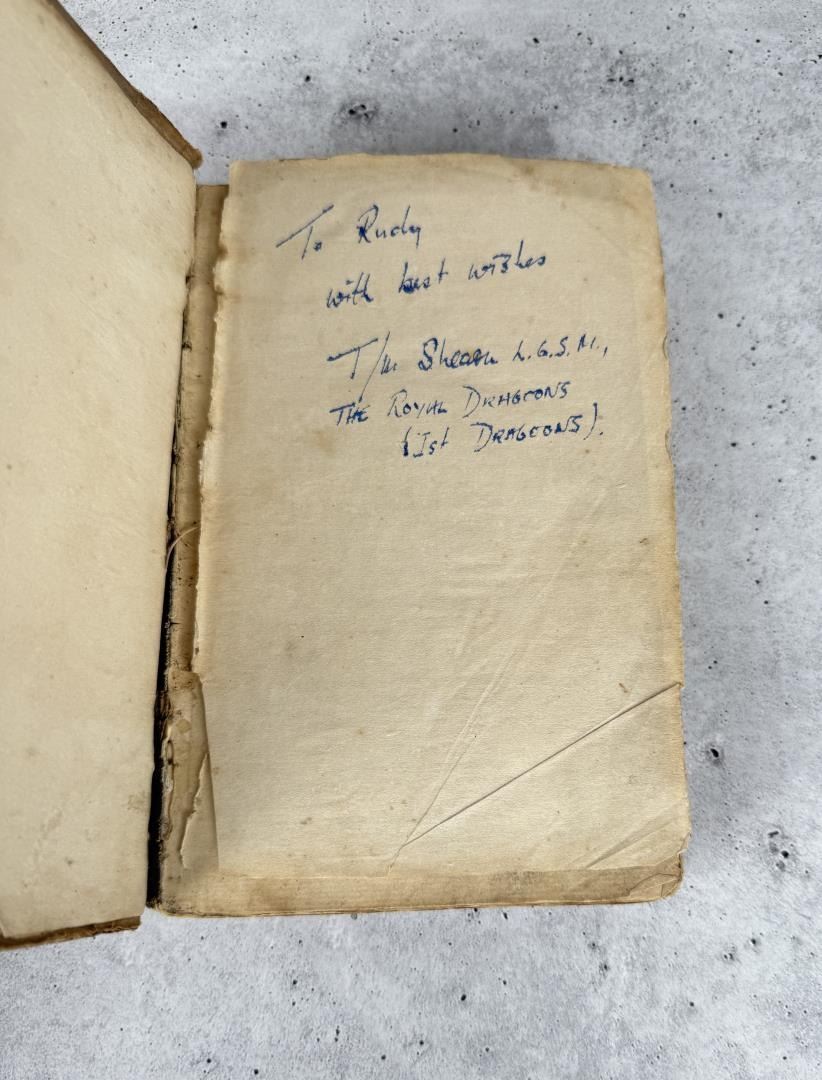 To Rudy
with best wishes
T/m Shearn L.G.S.M.,
THE ROYAL DRAGOONS
(1st DRAGOONS).